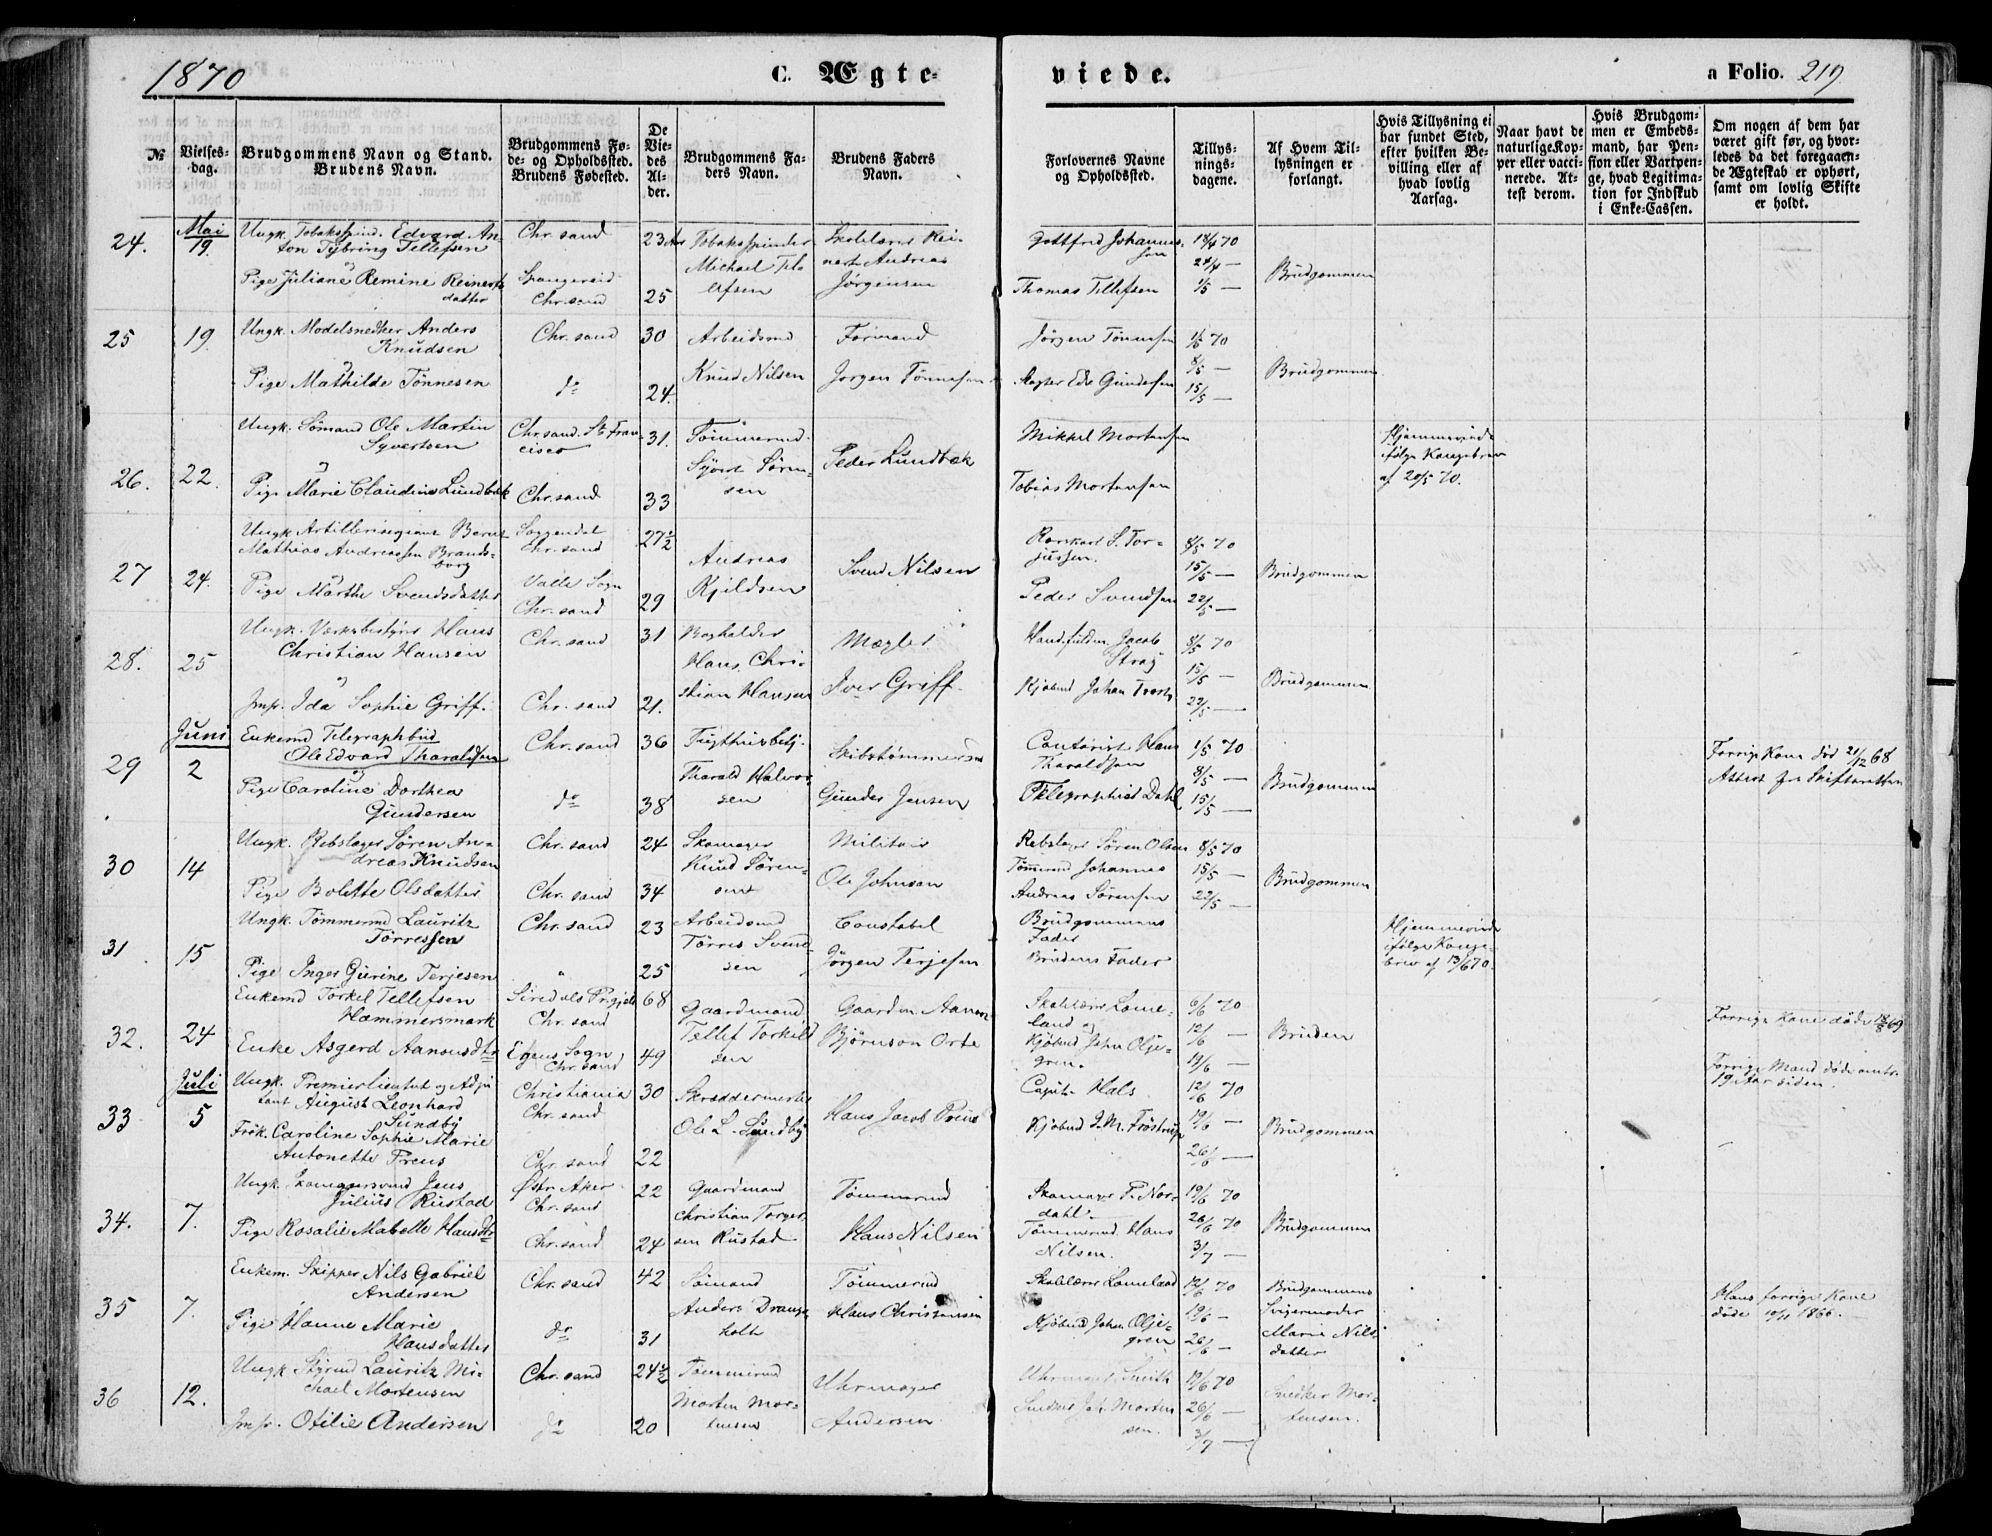 1870
C. Ægte-
viede.
a Folio. 219.
№
Vielses-
dag.
Brudgommens Navn og Stand.
Brudens Navn.
Brudgommens Fø-
de- og Opholdssted.
Brudens Fødested.
De
Vie-
des
Al-
der.
Brudgommens Fa-
ders Navn.
Brudens Faders
Navn.
Forlovernes Navne
og Opholdssted.
Tillys-
nings-
dagene.
Af Hvem Til-
lysningen er
forlangt.
Hvis Tillysning ei
har fundet Sted,
efter hvilken Be-
villing eller af
hvad lovlig
Aarsag.
Naar havt de
naturlige Kop-
per eller vacci-
nerede. At-
test derom.
Hvis Brudgom-
men er Embeds-
mand, har Pen-
sion eller Vartpen-
ge, hvad Legitima-
tion for Indskud
i Enke-Cassen.
Om nogen af dem har
været gift før, og hvor-
ledes da det foregaaen-
de Ægteskab er ophørt,
samt om lovlig Skifte
er holdt.
24.
Mai
19
Ungk. Tobaksspind. Edvard An-
ton Tybring Tellefsen
og
Pige Juliane Remine Reinerts
datter
Chr. sand
Spangereid
Chr. sand
23 Ar
25
Tobaksspinder
Michael Tel
lefsen
Skolelærer Rei-
nert Andreas
Jørgensen
Gottfred Johannes-
sen
Thomas Tellefsen
18/4 70
24/4 —
1/5 —
Brudgommen
25
19.
Ungk. Modelsnedker Anders
Knudsen
og
Pige Mathilde Tönnesen
Chr. sand
do
30
24.
Arbeidsmd
Knud Nilsen
Formand
Jørgen Tönnesen
Jørgen Tönnesen
Slagter Edv Gundersen
1/5 70
8/5 —
15/5 —
Brudgommen
26.
22.
Ungk. Sömand Ole Martin
Syvertsen
og
Pige Marie Claudine Lundbæk
Chr. sand. St Fran-
cisco
Chr. sand
31.
33
Tømmermd.
Syvert Sören-
sen
Peder Lundbæk
Mikkel Mortensen
Tobias Mortensen
Hjemmeviede
ifølge Kongebrev
af 20/5 70.
27
24.
Ungk Artillerisergeant Bernt
Mathias Andreassen Brands-
borg
og
Pige Marthe Svendsdatter
Soggendal
Chr. sand
Valle Sogn
Chr. sand
27½
29
Andreas
Kjeldsen
Svend Nilsen
S. Tor-
jussen.
Peder Svendsen
8/5 70
15/5 —
22/5 —
Brudgommen
28.
25
Ungk. Værksbestyrer Hans
Christian Hansen
og
Jmfr. Ida Sophie Griff.
Chr. sand
Chr. sand
31
21.
Bogholder
Hans Chri-
stian Hansen
Mægler
Iver Griff.
Jacob
Stray
Kjøbmd Johan
8/5 70
15/5 —
22/5 —
Brudgommen
29
Juni
2
Enkemd Telegraphbud
Ole Edvard Tharaldsen
og
Pige Caroline Dorthea
Gundersen
Chr. sand
do
36
38
Tugthusbetj.
Tharald Halvor-
sen
Skibstømmermd
Gunder Jensen
Contorist Hans
Tharaldsen
Telegraphist Dahl
1/5 70
8/5 —
15/5 —
Brudgommen
Forrige Kone död 21/12 68
Attest fra Skifteretten
30
14
Ungk. Rebslager Søren An-
dreas Knudsen
Pige Bolette Olsdatter
Chr. sand
Chr. sand
24
34
Skomager
Knud Søren-
sen
Militair
Ole Johnsen
Rebslager Sören Olsen
Tömmermd Johannes
Andreas Sørensen
8/5 70
15/5 —
22/5 —
Brudgommen
31.
15
Ungk. Tömmermd Lauritz
Törressen
Pige Inger Gurine Terjesen
Chr. sand
"
23
25
Arbeidsmd
Törres Svend-
sen
Constabel
Jørgen Terjesen
Brudgommens
Fader
Brudens Fader
Hjemmeviede
ifölge Konge-
brev af 13/6 70.
32.
24
Enkemd Torkel Tellefsen
Hammersmark
Enke Asgerd Aanonsdtr
Siredals Prgjeld
Chr. sand
Egens Sogn,
Chr. sand
68
49
Gaardmand
Tellef Torkild-
sen
Gaardm Aanon
Björnson Orte
Skolelærer Lome-
land og
Kjøbmd John Olje-
gren.
6/6 70
12/6 —
19/6 —
Bruden
Forrige Kone døde 18/8 69
Forrige Mand døde omtr.
19 Aar siden.
33
Juli
5
Ungk. Premierlieutnt og Adju-
tant August Leonhard
Sundby
Frök. Caroline Sophie Marie
Antonette Preus
Christiania
Chr. sand
Chr. sand
30
22
Skræddermester
Ole L. Sundby
Hans Jacob Preus
Capit. Hals
Kjøbmd I. M. Fröstrup
12/6 70
19/6 —
26/6 —
Brudgommen
34.
7.
Ungk. Skomagersvend Jens
Julius Rustad
Pige Rosalie Mabelle Hansdtr
Østr. Aker
Chr. sand
Chr. sand
22
24
Gaardmand
Christian Torger-
sen Rustad
Tömmermd
Hans Nilsen
Skomager P. Nor-
dahl
Tömmermd. Hans
Nilsen.
19/6 70
26/6 70
3/7 —
Brudgommen
35
7.
Enkem. Skipper Nils Gabriel
Andersen
Pige Hanne Marie
Hansdatter
Chr. sand
do
42
31
Sömand
Anders Drangs-
holt
Tömmermd
Hans Christensen
Skolelærer Lomeland
Kjøbmd John Olje-
gren
12/6 70
19/6 —
26/6 —
Brudgommens
Svigermoder
Marie Nils-
datter
Hans forrige Kone
döde 10/11 1866.
36
12.
Ungk Styrmd Lauritz Mi-
chael Mortensen
Jmfr. Otilie Andersen
Chr. sand
do
24½
20
Tømmermd
Morten Mor-
tensen
Uhrmager
Andersen
Uhrmager Smith
Snedker Joh. Morten
sen.
19/6 70
26/6 —
3/7 —
Snedker Mor-
tensen.